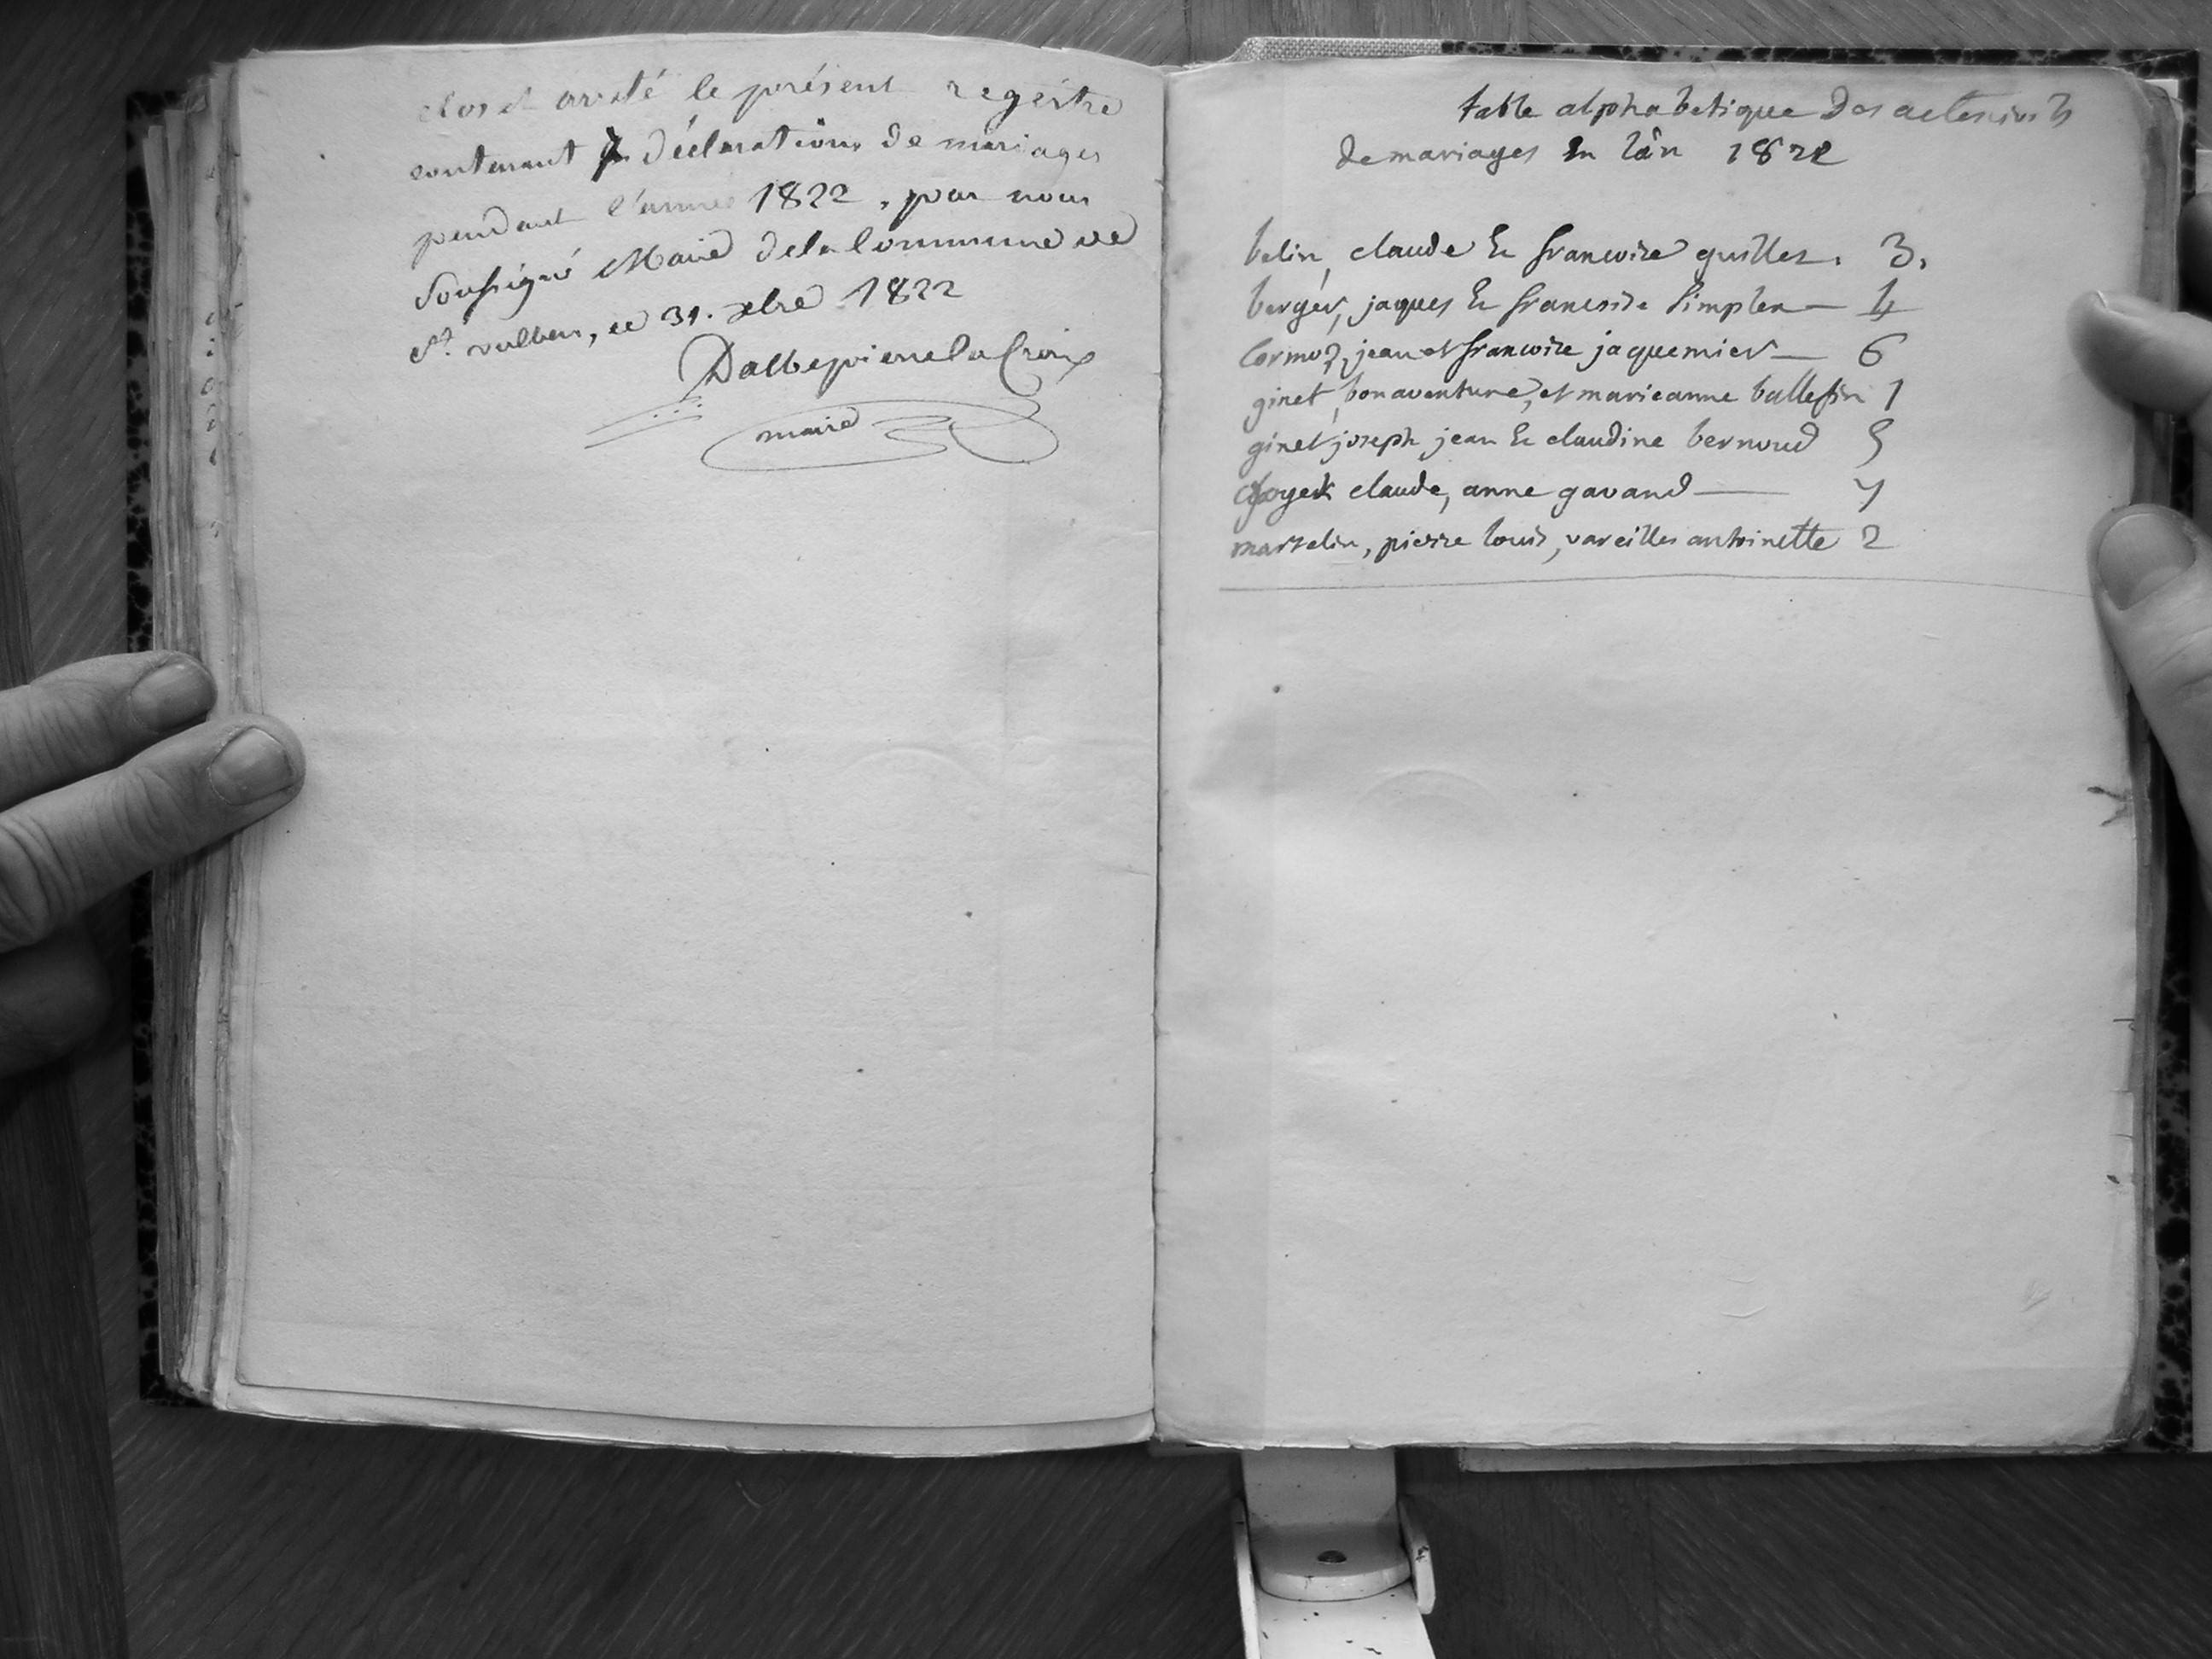 clos et areté le présent regéstre
contenant 7 déclarations de mariages
pendant l'année 1822, par nous
soussigné Maire de la Commune de
St. vulbas, ce 31. xbre 1822
Dalbepierre la Croix
maire
table alphabetique des actes civils
de mariages En l'ân 1822
belin, claude Et francoise guillet. 3.
berger, jaques Et francoise simplex — 4
Cormoz, jean et francoise jaquemier — 6
ginet, bonaventure, et marieanne ballefin 1
ginet joseph jean Et claudine bernoud 5
claude, anne gavand — 7
martelin, pierre louis, vareilles antoinette 2